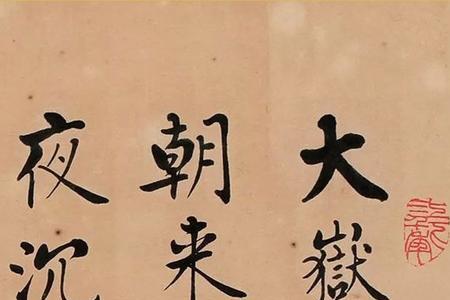 大嶽
朝来
夜沉